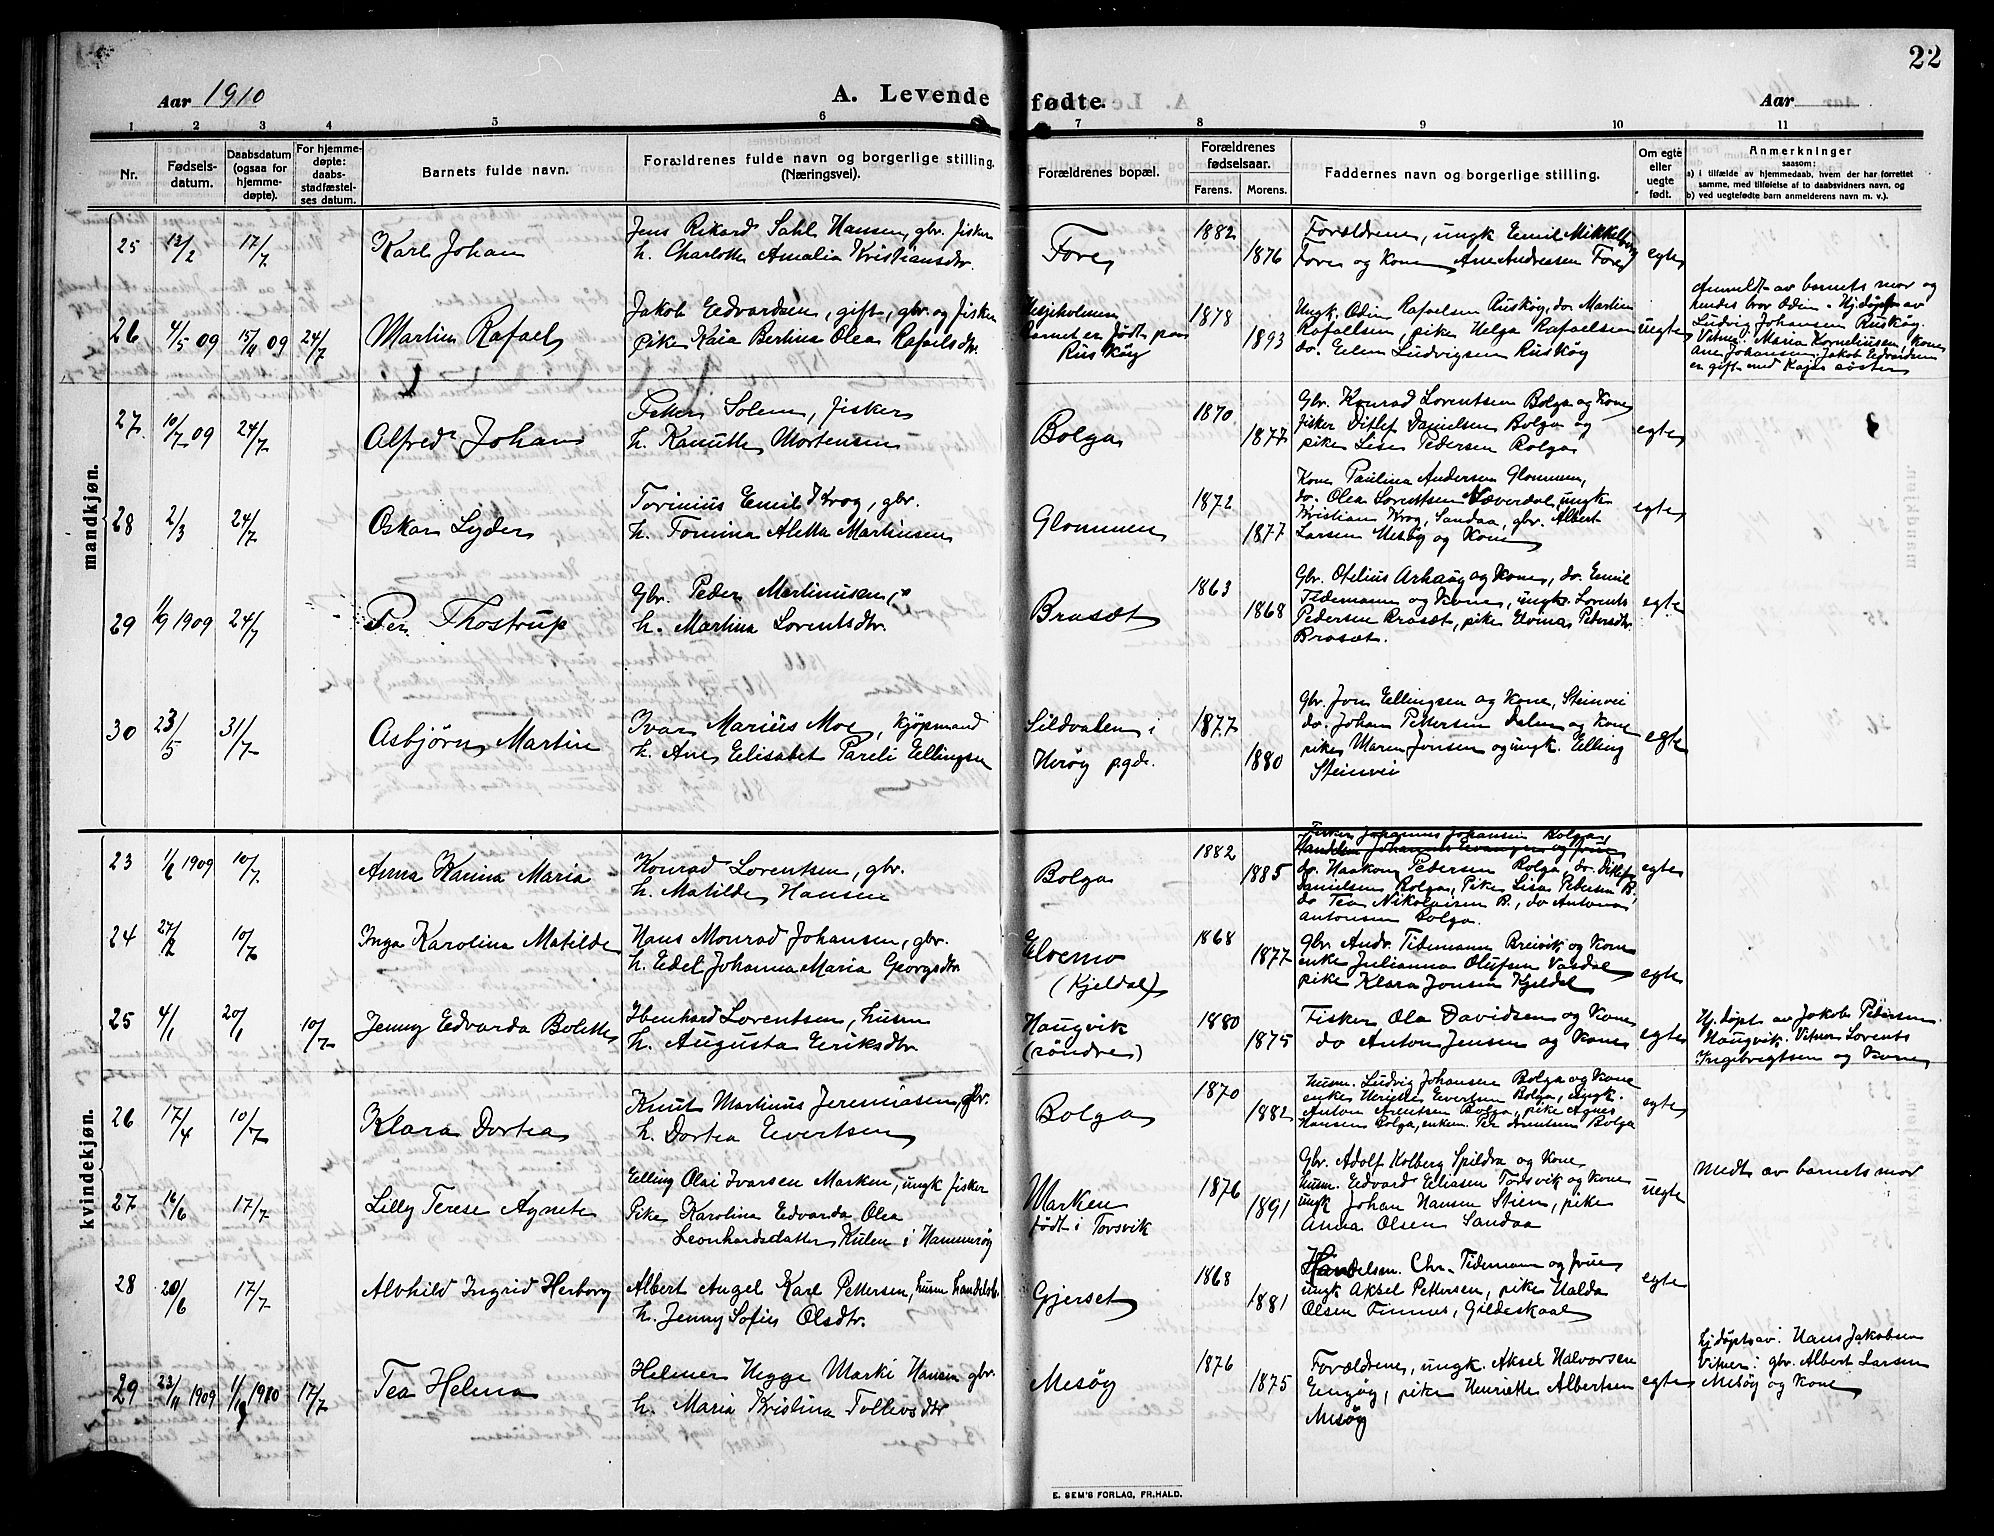 22
Aar 1910
A. Levende fødte.
Aar
1 2 3 4 5 6 7 8 9 10 11
Nr.
Fødsels-
datum.
Daabsdatum
(ogsaa for
hjemme-
døpte).
For hjemme-
døpte:
daabs-
stadfæstel-
ses datum.
Barnets fulde navn.
Forældrenes fulde navn og borgerlige stilling.
(Næringsvei).
Forældrenes bopæl.
Forældrenes
fødselsaar.
Farens. Morens.
Faddernes navn og borgerlige stilling.
Om egte
eller
uegte
født.
Anmerkninger
saasom:
a) i tilfælde av hjemmedaab, hvem der har forrettet
samme, med tilføielse af to daabsvidners navn, og
b) ved uegtefødte barn anmelderens navn m. v.).
mandkjøn.
25 12/2 17/7 Karl Johan
Jens Rikard Sahl Hansen, gbr. fisker
h. Charlotte Amalia Kristiansdtr.
Fore
1882
1876
Forældrene, ungk Emil Mikkelborg
Fore og Kone, Ane Andreasen Fore
egte
26 4/5 09 15/11 09 24/7 Martin Rafael
Jakob Edvardsen, gift, gbr. og fisker
pike Kaia Bertine Olea Rafaelsdtr.
barnet er født paa
Ruskøy
1878
1893
Ungk. Odin Rafaelsen Ruskøy, do Martin
Rafaelsen, pike Helga Rafaelsen
do. Elen Ludvigsen Ruskøy
uegte
Anmeldt av barnets mor og
hendes bror Odin. Hj.døpt av
Ludvig Johansen Ruskøy.
Vitner: Maria Korneliusen, kone
Ane Johansen. Jakob Edvardsen
er gift med Kajas søster
27 10/7 09 24/7 Alfred Johan
Peter Solem, fisker
h. Kanutte Mortensen
Bolga
1870
1877
Gbr. Konrad Lorentsen Bolga og Kone
fisker Ditlef Danielsen Bolga og
pike Lise Pedersen Bolga
egte
28 2/3 24/7 Oskar Lyder
Torinius Emil Krog, gbr.
h. Tomina Aletta Martinsen
Glommen
1872
1877
Kone Paulina Andersen Glommen,
do. Olea Lorentsen Næverdal, ungk
Kristian Krog, Sandaa, gbr. Albert
Larsen Mesøy og Kone
egte
29 11/9 1909 24/7 Per Thostrup
Gbr. Peder Martinusen,
h. Martina Lorentsdtr.
Brasæt
1863
1868
Gbr. Otelius Arhaug og Kone, do. Emil
Tidemann og Kone, ungk. Lorents
Pedersen Brasæt, pike Elvina Pedersdtr.
Brasæt.
egte
30 23/5 31/7 Asbjørn Martin
Ivar Marius Moe, kjøpmand
h. Ane Elisabet Pareli Ellingsen
Sildvalen i
Herøy pgd.
1877
1880
Gbr. Jorn Ellingsen og Kone, Steinvei
do. Johan Pettersen Dalen og Kone
pike Maren Jonsen og ungk. Elling
Steinvei
egte
kvindekjøn.
23 1/6 1909 10/7. Anna Hanna Maria
Konrad Lorentsen, gbr.
h. Matilde Hansen
Bolga
1882
1885
Fisker Johannes Johansen Bolga,
do. Haakon Pedersen Bolga, do. Ditlef
Danielsen Bolga, Pike Lisa Pedersen B.,
do Tea Nikolaisen B., do Antona
Antonsen Bolga.
egte
24 27/2 10/7 Inga Karolina Matilde
Hans Monrad Johansen, gbr.
h. Edel Johanna Maria Georgsdtr
Elvemo
(Kjeldal)
1868
1877
Gbr. Andr. Tidemann Breivik og Kone
enke Julianna Olufsen Vasdal
pike Klara Jonsen Kjeldal
egte
25 4/1 20/1 10/7 Jenny Edvarda Bolette
Ibenhard Lorentsen, husm
h. Augusta Eriksdtr.
Haugvik
(søndre)
1880
1875
Fisker Ola Davidsen og Kone
do Anton Jensen og Kone
egte
Hj.døpt av Jakob Pedersen
Haugvik. Vitner Lorents
Ingebrigtsen og Kone
26 17/4 10/7 Klara Dortea
Knut Martinus Jeremiasen, gbr.
h. Dortea Evertsen
Bolga
1870
1882
Husm. Ludvig Johansen Bolga og Kone
enke Henrikke Evertsen Bolga, ungk.
Anton Arentsen Bolga, pike Agnes
Hansen Bolga, enkem. Per Arntsen Bolga
egte
27 16/6 17/7 Lilly Terese Agnete
Elling Olai Ivarsen Marken, ungk fisker
Pike Karolina Edvarda Olea
Leonhardsdatter Kulen i Hammerøy
Marken
født i Torsvik
1876
1891
Gbr. Adolf Kolberg Spildra og Kone
husm. Edvard Eliasen Torsvik og Kone
ungk Johan Hansen Stien, pike
Anna Olsen Sandaa
uegte
Medt av barnets mor
28 20/6 17/7 Alvhild Ingrid Herborg
Albert Angel Karl Pettersen, husm handelsb.
h. Jenny Sofie Olsdtr.
Gjerset
1868
1881
Handelsm. Chr. Tidemann og frue
ungk Aksel Pettersen, pike Halda
Olsen Finnes, Gildeskaal
egte
29 23/11 1909 1/1 1910 17/7 Tea Helena
Helmer Hegge Marki Hansen gbr.
h. Maria Kristina Tollevsdtr
Mesøy
1876
1875
Forældrene, ungk. Aksel Halvorsen
Engøy, pike Henriette Albertsen
Mesøy
egte
Hj døpt av: Hans Jakobsen
Vitner: gbr. Albert Larsen
Mesøy og Kone
E. SEM'S FORLAG, FR.HALD.